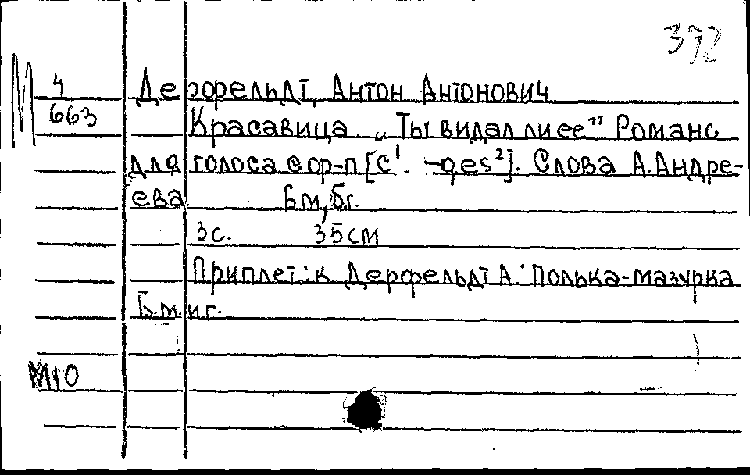 392
М 4 Дерфельдт, Антон Антонович
663 Красавица. „Ты видал ли ее" Романс
для голоса с ф-п [c¹. -ges²]. Слова А. Андре-
ева Б м, б г.
3 с. 35 см
Приплет: к Дерфельдт А. Полька-мазурка
Б.м. и г.
М10